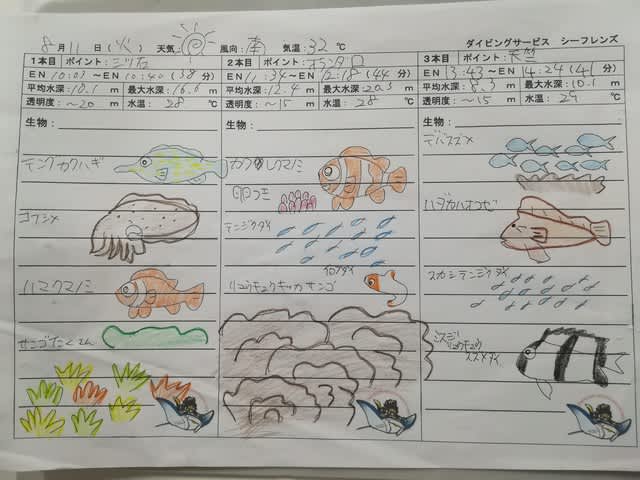 8月11日(火) 天気 風向:南 気温:32℃
ダイビングサービス シーフレンズ
1本目 ポイント:三ツ石
EN 10:03 ~EN 10:40 (38分)
平均水深:10.1 m 最大水深:16.6 m
透明度:~20 m 水温:28 ℃
生物:
テングカワハギ
コブシメ
ハマクマノミ
サンゴたくさん
2本目 ポイント:
EN 11:34~EN 12:18 (44分)
平均水深:12.4 m 最大水深:20.3 m
透明度:~15 m 水温:28 ℃
生物:
カクレクマノミ
卵つき
テンジクダイ
リュウキュウキッカサンゴ
3本目 ポイント:天竺
EN 13:43~EN 14:24 (41分)
平均水深:8.3 m 最大水深:10.1 m
透明度:~15 m 水温:29 ℃
生物:
デバスズメ
ハダカハオコゼ
スカシテンジクダイ
ミスジ
リュウキュウ
スズメダイ